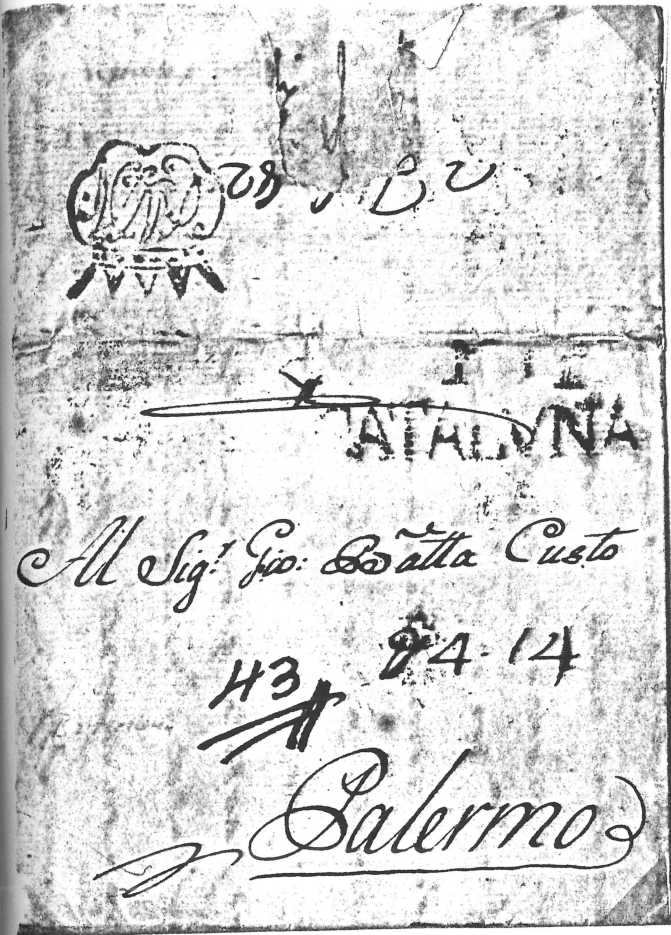 CATALVÑA
Al Sig.r Gio: Batta Custo
43
84-14
Palermo